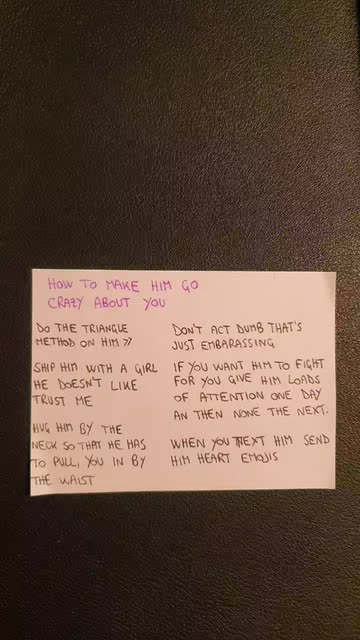 HOW TO MAKE HIM GO
CRAZY ABOUT YOU
DO THE TRIANGLE
METHOD ON HIM >>
SHIP HIM WITH A GIRL
HE DOESN'T LIKE
TRUST ME
HUG HIM BY THE
NECK SO THAT HE HAS
TO PULL, YOU IN BY
THE WAIST
DON'T ACT DUMB THAT'S
JUST EMBARASSING
IF YOU WANT HIM TO FIGHT
FOR YOU GIVE HIM LOADS
OF ATTENTION ONE DAY
AN THEN NONE THE NEXT.
WHEN YOU TEXT HIM SEND
HIM HEART EMOJIS